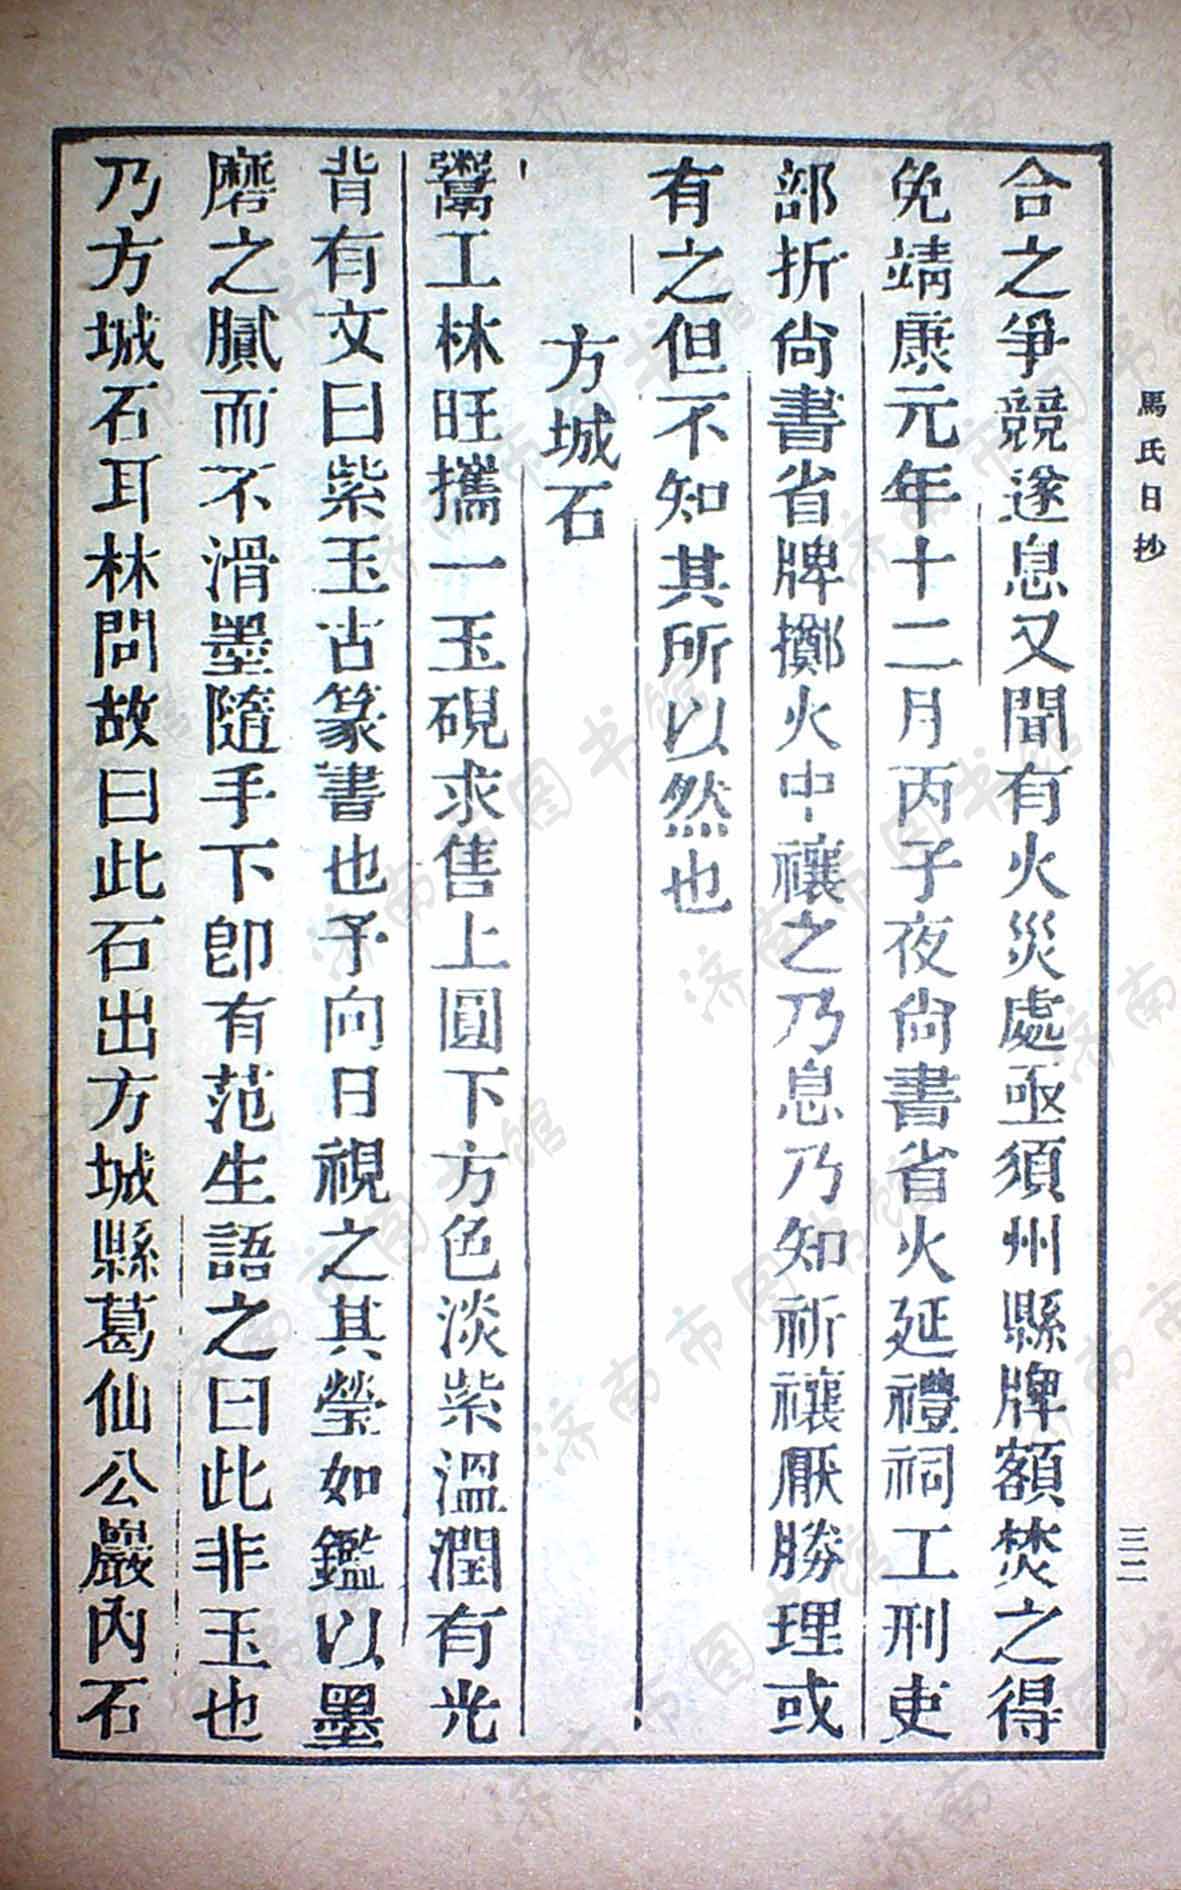 馬氏日抄
三二
合之爭競遂息又聞有火災處亟須州縣牌額焚之得
免靖康元年十二月丙子夜尙書省火延禮祠工刑吏
部折尙書省牌擲火中禳之乃息乃知祈禳厭勝理或
有之但不知其所以然也
方城石
鬻工林旺攜一玉硯求售上圓下方色淡紫溫潤有光
背有文曰紫玉古篆書也予向日視之其瑩如鑑以墨
磨之膩而不滑墨隨手下卽有范生語之曰此非玉也
乃方城石耳林問故曰此石出方城縣葛仙公巖內石